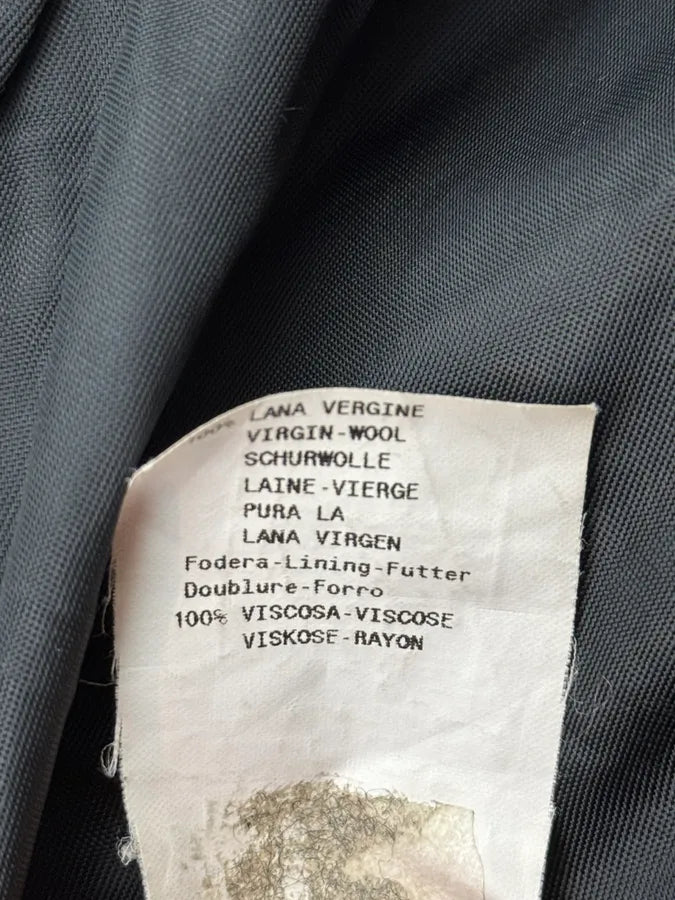 100% LANA VERGINE
VIRGIN-WOOL
SCHURWOLLE
LAINE-VIERGE
PURA LA
LANA VIRGEN
Fodera-Lining-Futter
Doublure-Forro
100% VISCOSA-VISCOSE
VISKOSE-RAYON